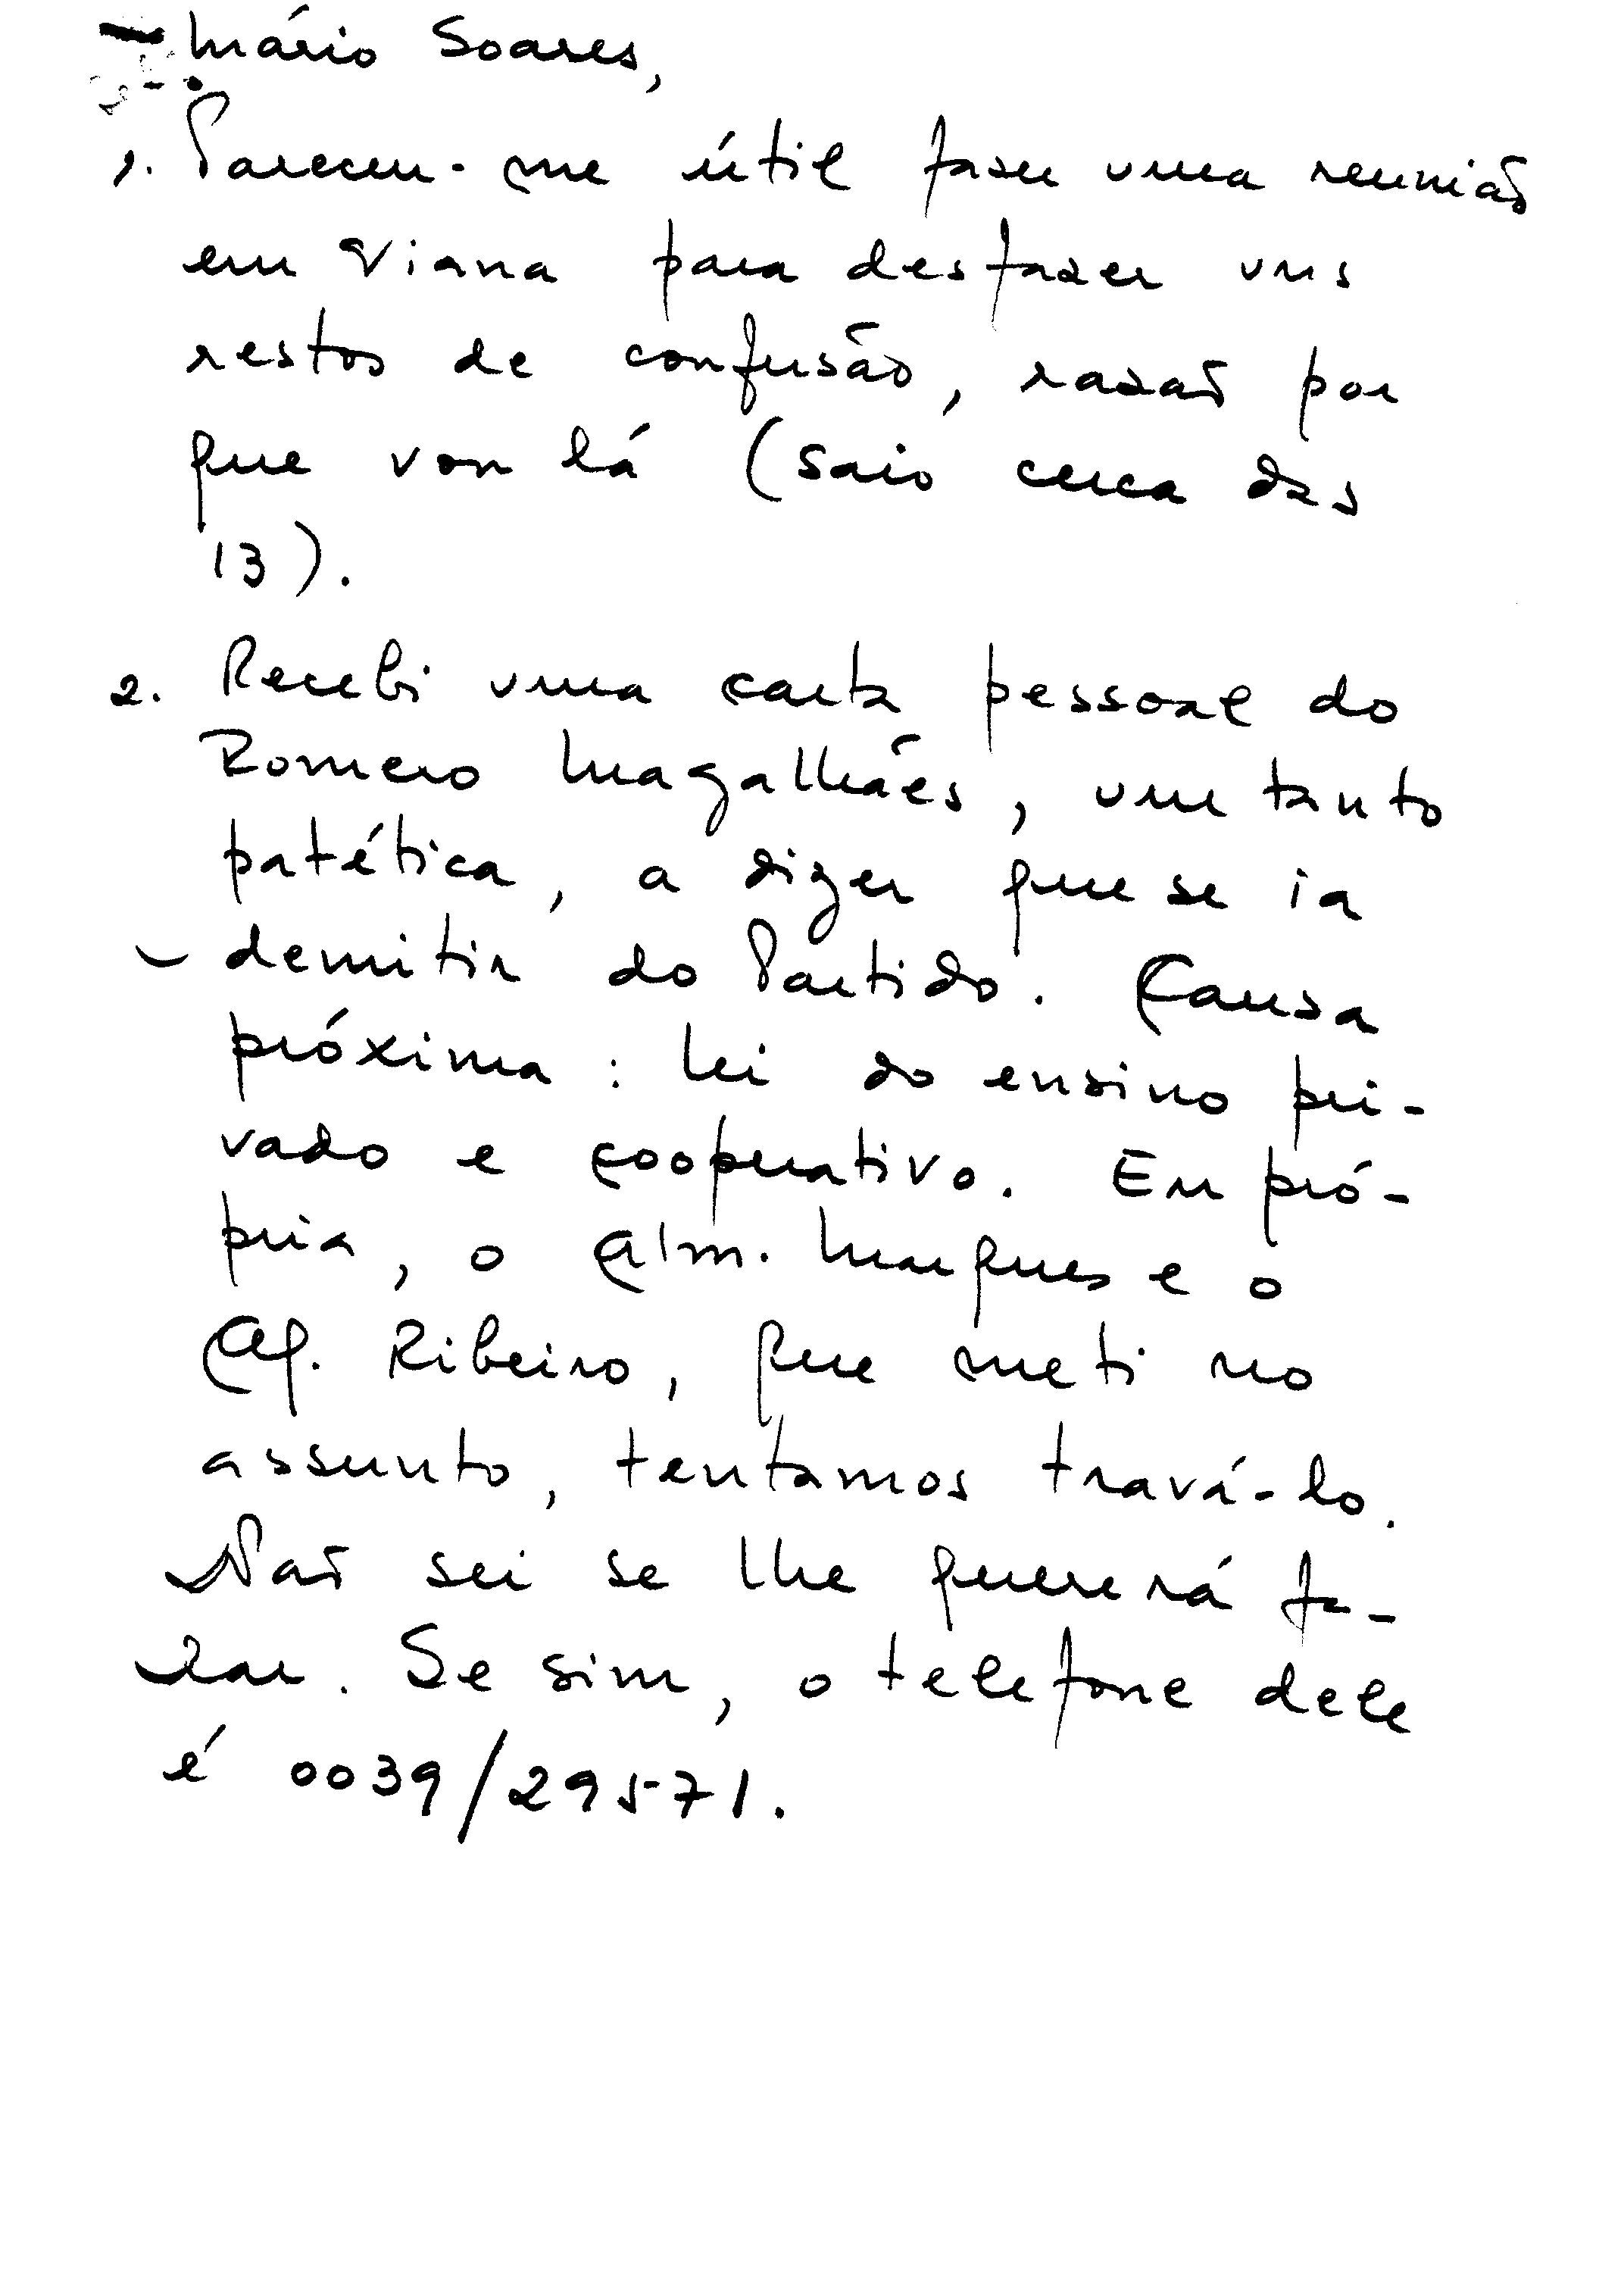 Mário Soares,
1. Pareceu-me útil fazer uma reunião
em Viana para desfazer uns
restos de confusão, razão por
que vou lá (saio cerca das
13).
2. Recebi uma carta pessoal do
Romero Magalhães, um tanto
patética, a dizer que se ia
demitir do Partido. Causa
próxima: lei do ensino pri-
vado e cooperativo. Eu pró-
pria, o Alm. Marques e o
Aq. Ribeiro, que meti no
assunto, tentamos travá-lo.
Não sei se lhe quererá fa-
lar. Se sim, o telefone dele
é 0039/29571.